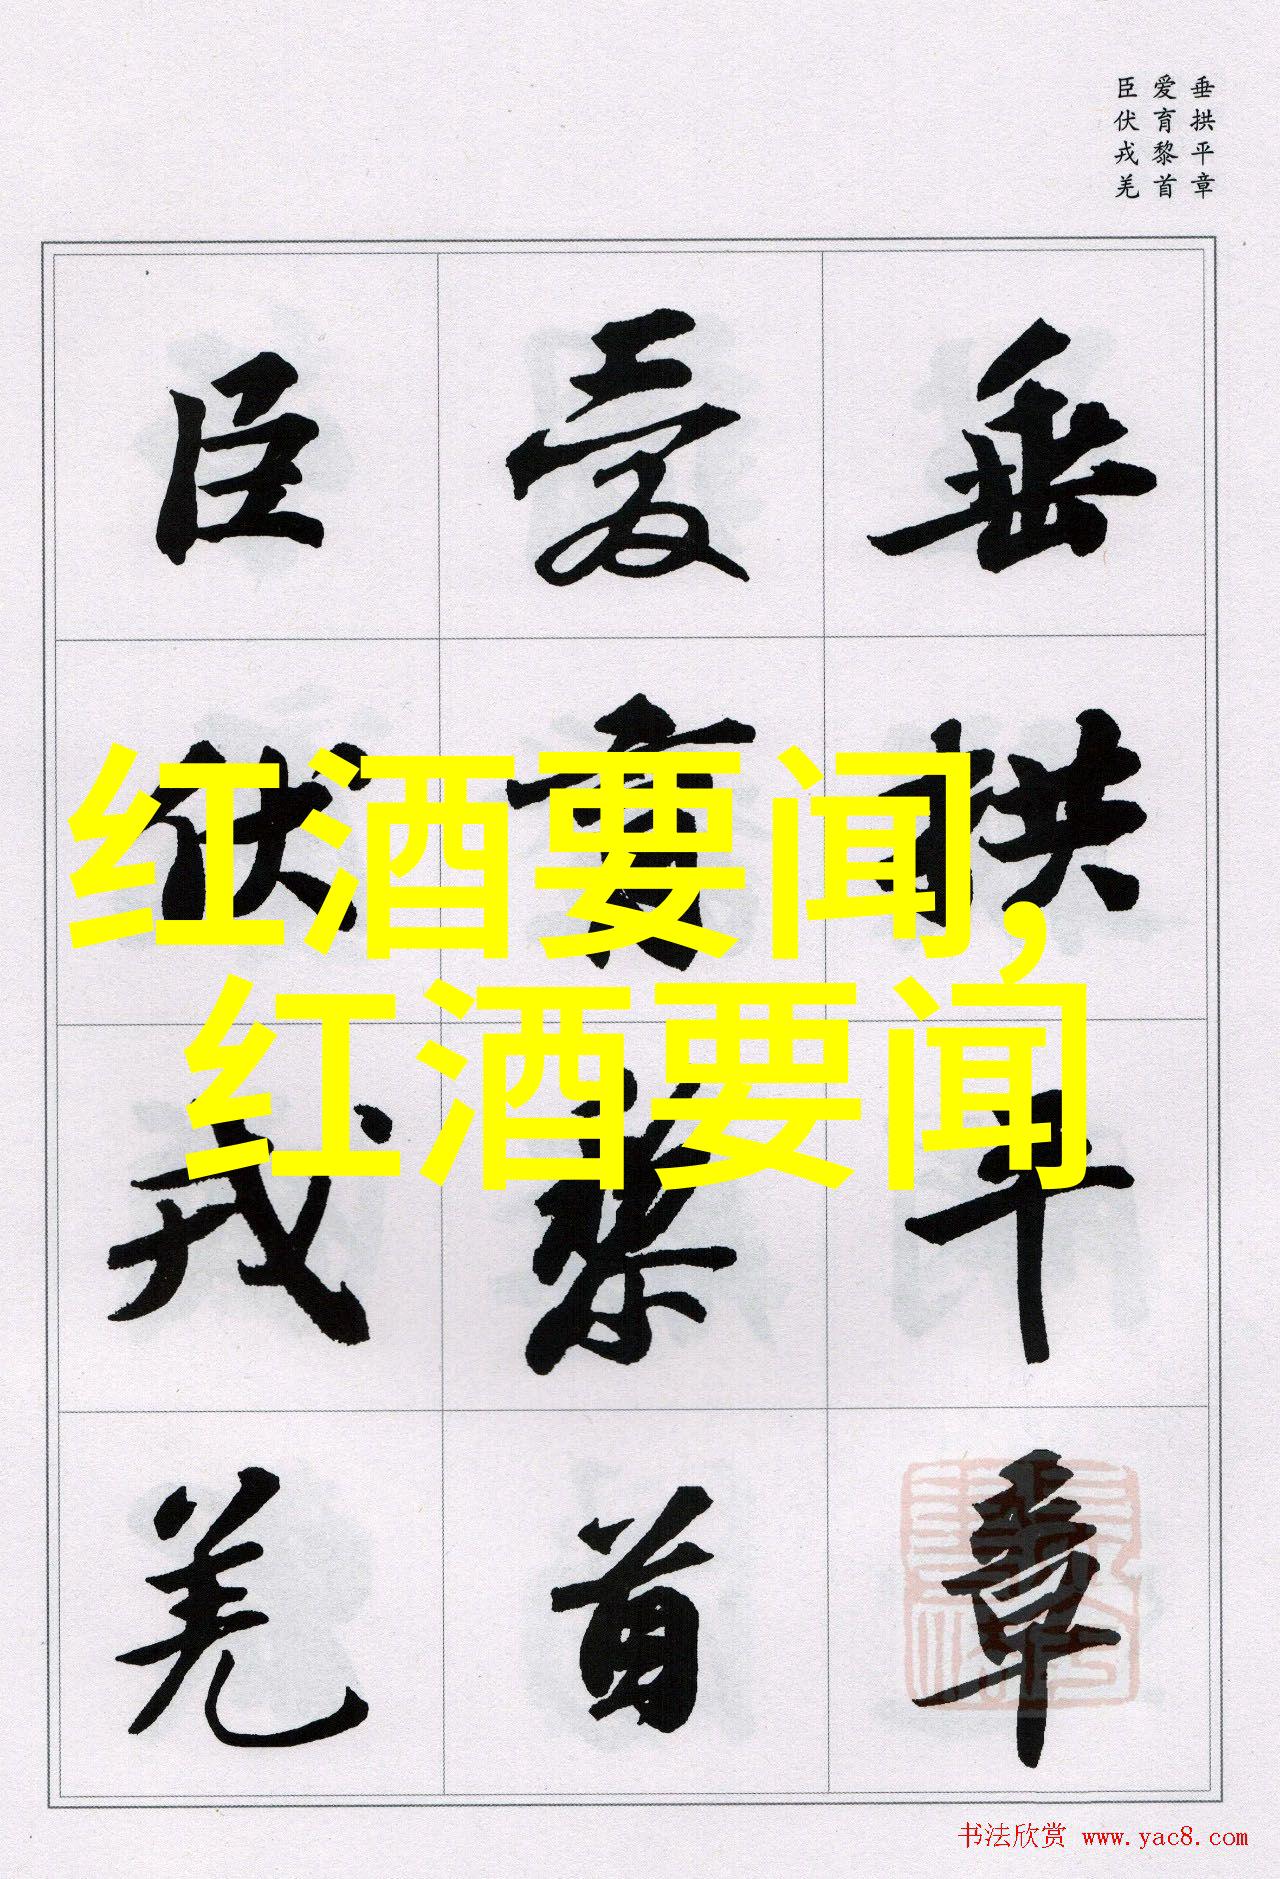 垂拱平章
爱育黎首
臣伏戎羌
垂拱平章
爱育黎首
臣伏戎羌
红酒要闻,
红酒要闻
书法欣赏 www.yac8.com